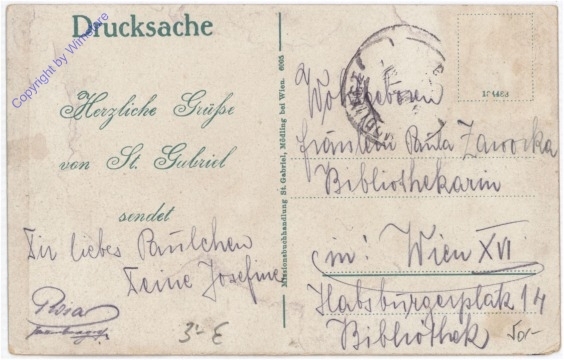 Drucksache
Copyright by Wimiware
Herzliche Grüße
von St. Gabriel
sendet
Dir liebes Paulchen
Deine Josefine
Rosa
3'- E
Missionsbuchhandlung St. Gabriel, Mödling bei Wien. 6005
Wohlgeboren
Fräulein Paula Zaworka
Bibliothekarin
in: Wien XVI
Habsburgerplatz 14
Bibliothek
50.-